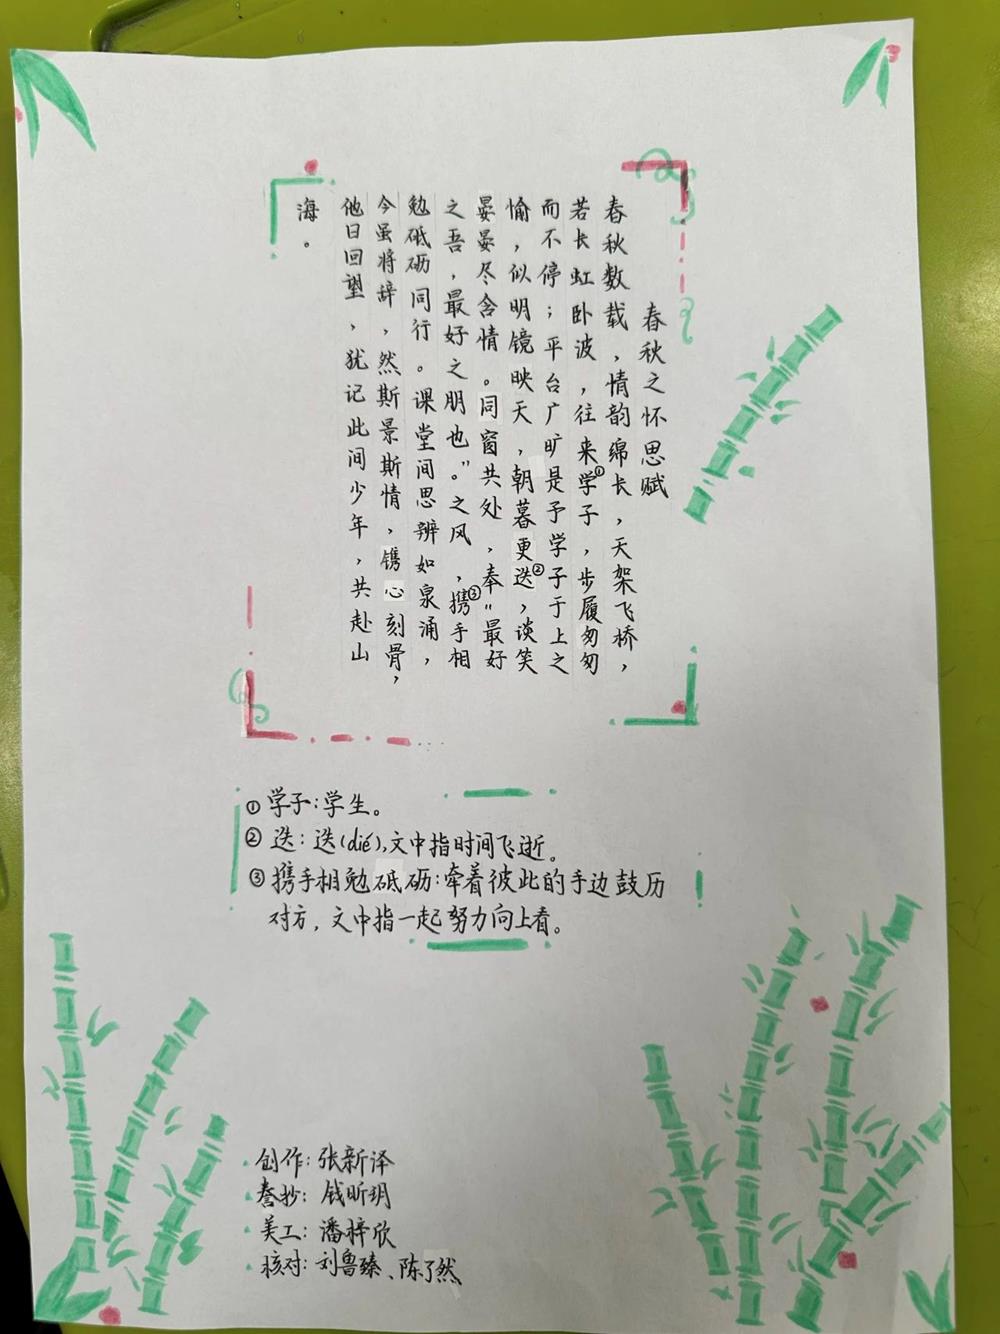 春秋之怀思赋
春秋数载，情韵绵长，天架飞桥，
若长虹卧波，往来学子①，步履匆匆
而不停；平台广旷是予学子于上之
愉，似明镜映天，朝暮更迭②，谈笑
晏晏尽含情。同窗共处，奉“最好
之吾，最好之朋也”。之风，携③手相
勉砥砺同行。课堂间思辨如泉涌，
今虽将辞，然斯景斯情，镌心刻骨，
他日回望，犹记此间少年，共赴山
海。
①学子：学生。
②迭：迭(dié)，文中指时间飞逝。
③携手相勉砥砺：牵着彼此的手边鼓历
对方，文中指一起努力向上看。
创作：张新泽
誊抄：钱昕玥
美工：潘梓欣
核对：刘鲁臻、陈了然